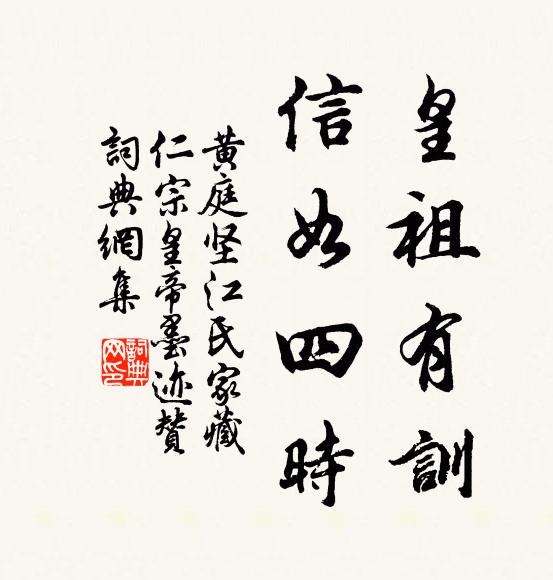 皇祖有訓
信如四時
黄庭坚江氏家藏
仁宗皇帝墨迹贊
詞典網集
詞典
网印